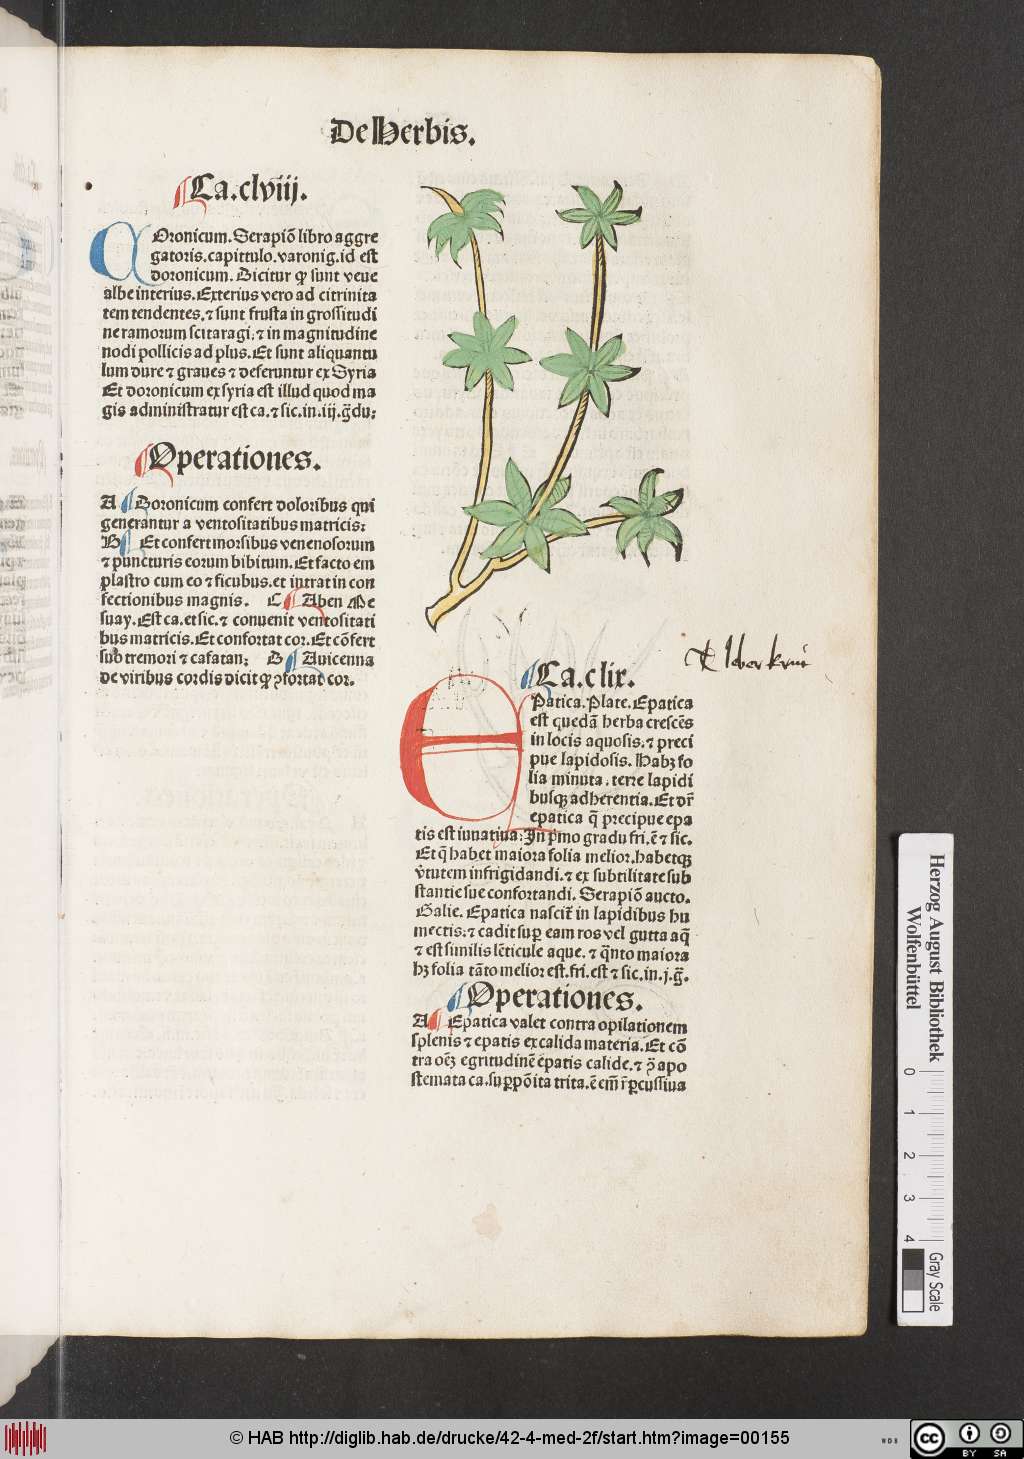 De Herbis.
Ca.clviij.
Oronicum. Serapiō libro aggre
gatoris. capittulo. varonig. id est
doronicum. Dicitur ꝙ sunt vene
albe interius. Exterius vero ad citrinita
tem tendentes. ⁊ sunt frusta in grossitudi
ne ramorum scitaragi: ⁊ in magnitudine
nodi pollicis ad plus. Et sunt aliquantu
lum dure ⁊ graues ⁊ deferuntur ex Syria
Et doronicum ex syria est illud quod ma
gis administratur est ca. ⁊ sic. in. iij. g̃du:
Operationes.
A Doronicum confert doloribus qui
generantur a ventositatibus matricis:
B Et confert morsibus venenosorum
⁊ puncturis eorum bibitum. Et facto em
plastro cum eo ⁊ ficubus. et intrat in con
fectionibus magnis. C Aben Me
suay. Est ca. et sic. ⁊ conuenit ventositati
bus matricis. Et confortat cor. Et cōfert
sub tremori ⁊ cafatan: D Auicenna
de viribus cordis dicit ꝙ ꝯfortat cor.
leberkrut
Ca.clix.
EPatica. Plate. Epatica
est quedā herba crescēs
in locis aquosis. ⁊ preci
pue lapidosis. Habꝫ fo
lia minuta. terre lapidi
busqꝫ adherentia. Et dr̄
epatica q̄ precipue epa
tis est iuuatiua: In pͥmo gradu fri. ē ⁊ sic.
Et q̄ habet maiora folia melior. habetqꝫ
v̓tutem infrigidandi. ⁊ ex subtilitate sub
stantie sue confortandi. Serapiō aucto.
Galie. Epatica nascit̄ in lapidibus hu
mectis: ⁊ cadit suꝑ eam ros vel gutta aq̄
⁊ est similis lēticule aque. ⁊ q̄nto maiora
hꝫ folia tāto melior est. fri. est ⁊ sic. in. j. g̃.
Operationes.
A Epatica valet contra opilationem
splenis ⁊ epatis ex calida materia. Et cō
tra oēꝫ egritudinē epatis calide. ⁊ ꝯ̄ apo
stemata ca. suꝑpōita trita. ē em̄ r̄ꝑcussiua
Herzog August Bibliothek
Wolfenbüttel
0 1 2 3 4
Gray Scale
© HAB http://diglib.hab.de/drucke/42-4-med-2f/start.htm?image=00155
WDB
cc BY SA